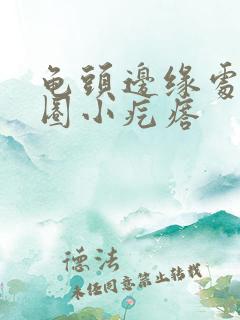 龟頭邊缘處
圈小疙瘩
德法
未经同意禁止转载